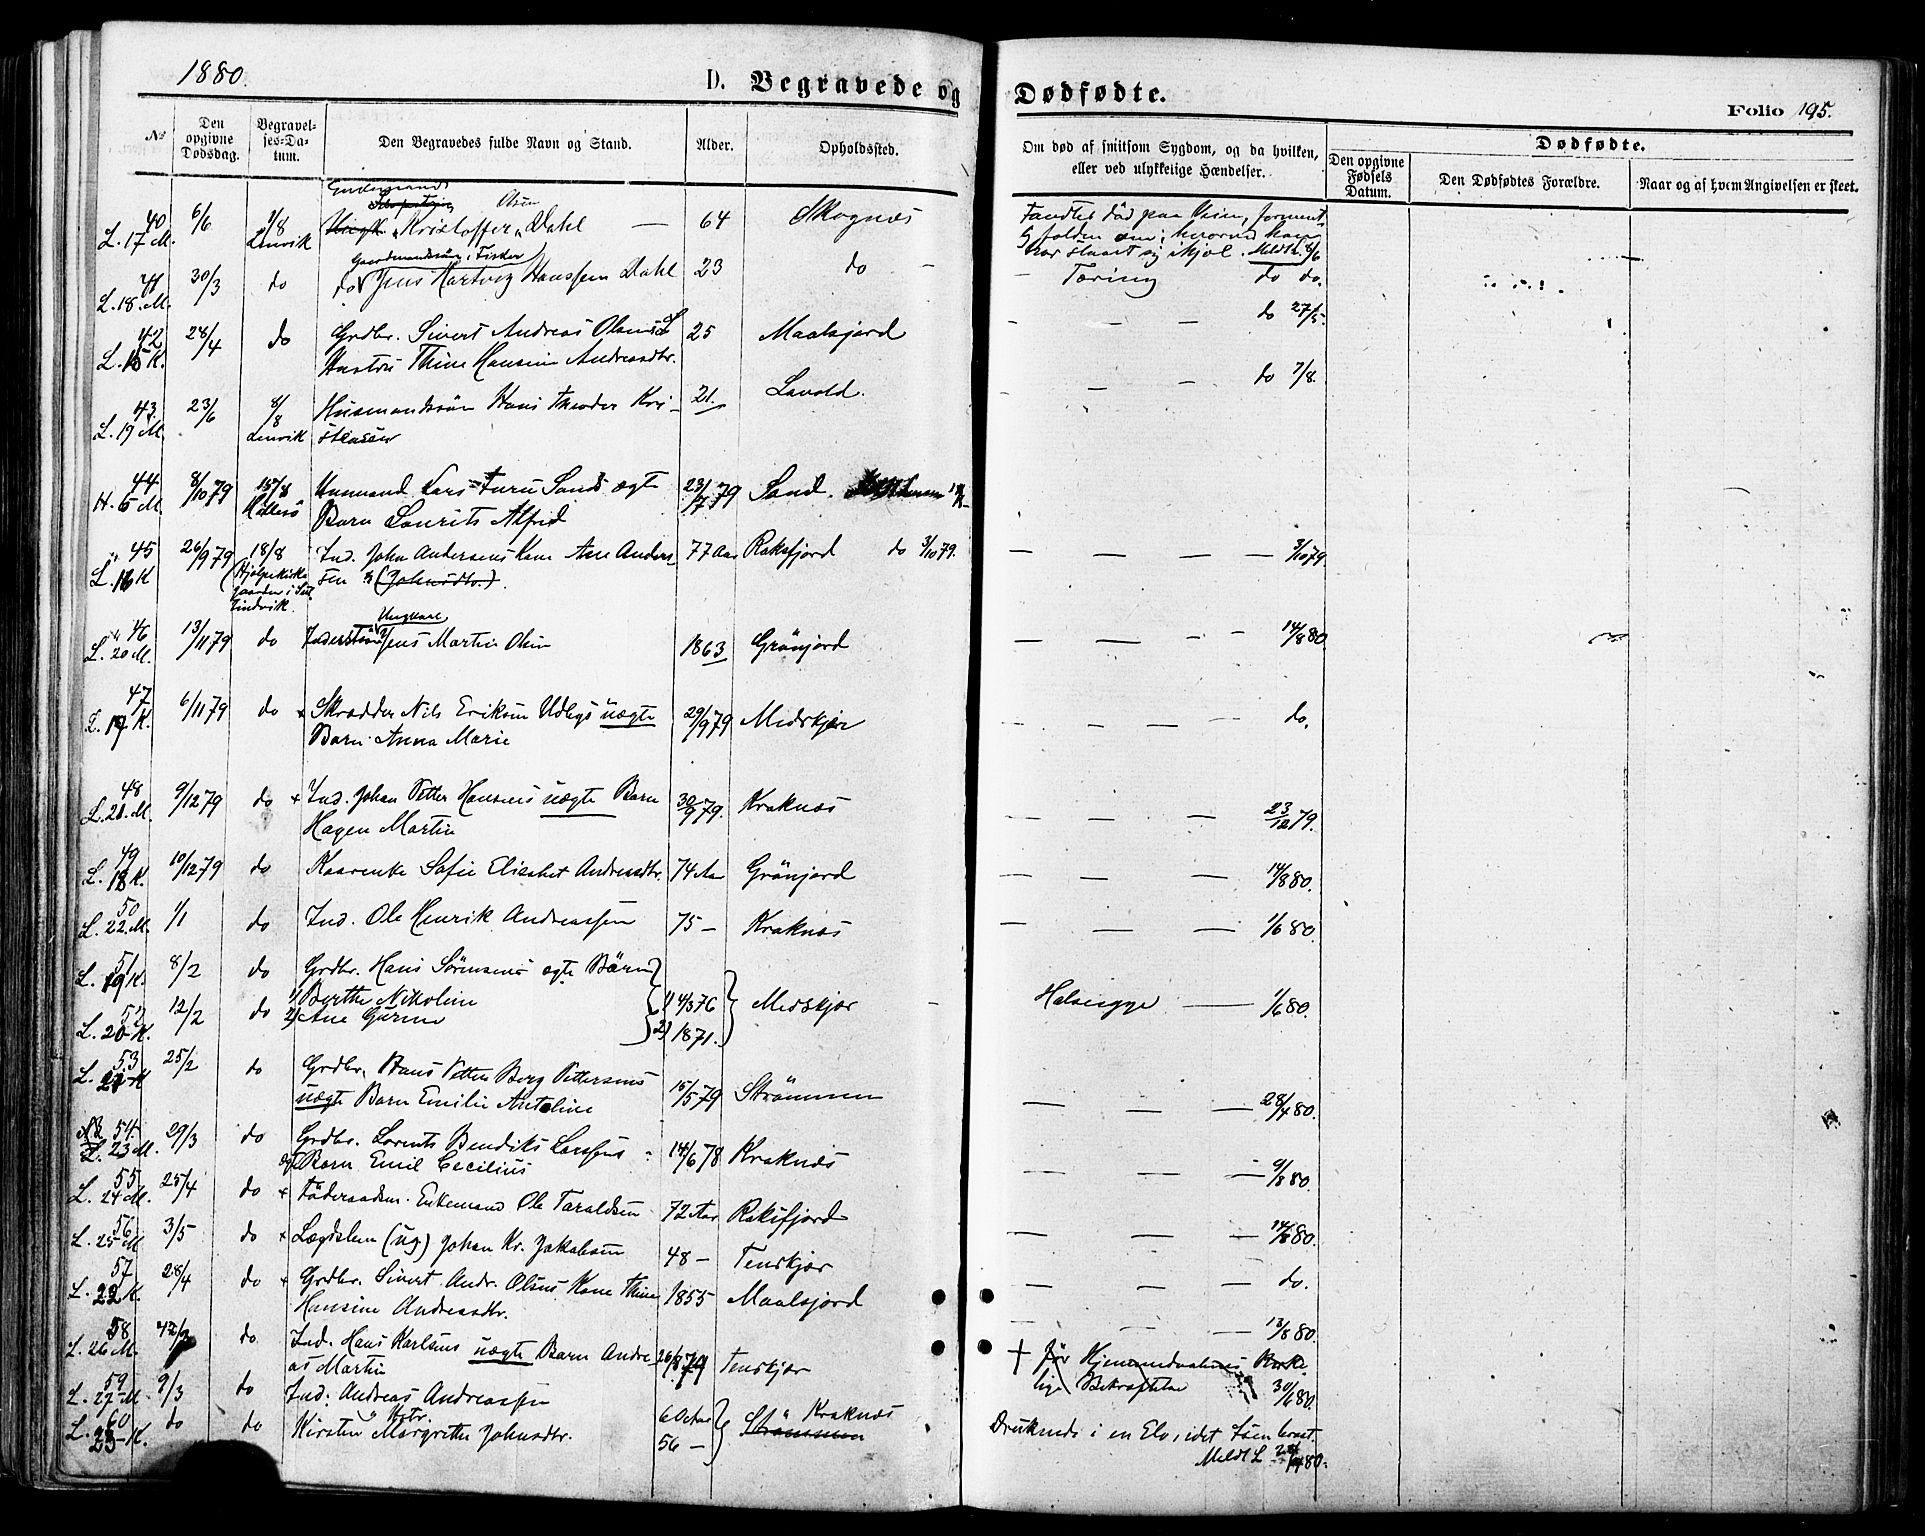 1880.
D. Begravede og Dødfødte.
Folio 195.
No
Den opgivne Dødsdag.
Begravelses-Datum.
Den Begravedes fulde Navn og Stand.
Alder.
Opholdssted.
Om død af smitsom Sygdom, og da hvilken, eller ved ulykkelige Hændelser.
Dødfødte.
Den opgivne Fødsels Datum.
Den Dødfødtes Forældre.
Naar og af hvem Angivelsen er skeet.
40 L. 17 M. 6/6 Lenvik Kristoffer Olsen Dahl — 64 Skognæs
Meldt L 8/6
41 L. 18. M. 30/3 do Gaardmandssøn, Fisker
do Jens Hartvig Hanssen Dahl 23 do — Tæring do do.
42 L. 15 K. 28/4 do Grdbr. Sivert Andreas Olsens 25 Maalsjord — — — do 27/5.
Hustru Thine Hansine Andreasdtr.
43. L. 19 M. 23/6 8/8 Lenvik Husmandssøn Hans Theodor Kri- 21. Lavold. — — do 7/8.
stensen
44 H. 5 M. 8/10 79 15/8 Husmand Lars Furu Sands ægte 23/7 79 Sand.
Barn Laurits Alfred
45 L. 16 K 26/9 79 18/8 Ind. Johan Andersens Kone Ane Anders- 77 Aar Raksfjord do 3/10 79. — — — — 3/10 79
(Hjelpekirke
sen (Johnsdtr.).
46 L. 20 M. 13/11 79 do Ungkarl
Jens Martin Olsen 1863 Grönjord — — — — 14/8 80.
47 L. 17 K. 6/11 79 do + Skrædder Nils Eriksen Udbys uægte 29/9 79 Medskjær — — — — do.
Barn Anna Marie
48 L. 21. M. 9/12 79 do + Ind. Johan Petter Hansens uægte Barn 30/9 79. Kraknæs — — — 23/12 79.
Hagen Martin
49 L. 18 K. 10/12 79 do Kaarenke Sofie Elisabet Andreasdtr. 74 Aar Grönjord — — — 14/8 80.
50 L. 22. M. 1/1 do Ind. Ole Henrik Andreassen 75 — Kraknæs — — — 1/6 80.
51 L. 19 K. 8/2 do Grdbr. Hans Sörensens ægte Börn
1) Berthe Nikoline 1) 4/3 76
52 L. 20 K. 12/2 do 2) Ane Gurine 2) 1871. Medskjær — Halssyge — 1/6 80.
53 L. 21 K 25/2 do Grdbr. Hans Petter Berg Pettersens
uægte Barn Emilie Antoline 15/5 79 Strömmen — — — 28/4 80.
NB 54. L. 23 M. 29/3 do Grdbr. Lorents Bendiks Larssens
ægte Barn Emil Cecilius 14/6 78 Kraknæs — — — 9/8 80.
55 L. 24 M. 25/4 do + Föderaadsm. Enkemand Ole Taraldsen 72 Aar Raksfjord — — — 14/8 80.
56 L. 25 M 3/5 do + Lægdslem (ug) Johan Kr. Jakobsen 48 — Tenskjær — — — do.
57 L. 22 K. 28/4 do + Grdbr. Sivert Andr. Olsens Kone Thine 1855 Maalsjord — — — 13/8 80.
Hansine Andreasdtr.
58 L. 26 M. do Ind. Hans Karlsens uægte Barn Andre- 26/8 79 Tenskjær
as Martin
+ før Hjemmedaabens Kirke-
lige Bekræftelse 30/6 80.
59 L. 27 M. 9/3 do Ind. Andreas Andreassen 60 Aar Kraknæs
60 L. 23 K. do do " Hstr.
Kirsten Margrethe Johnsdtr. 56 — Strömmen
Druknede i en Elv, idet Isen brast.
Meldt L 28/4 80.